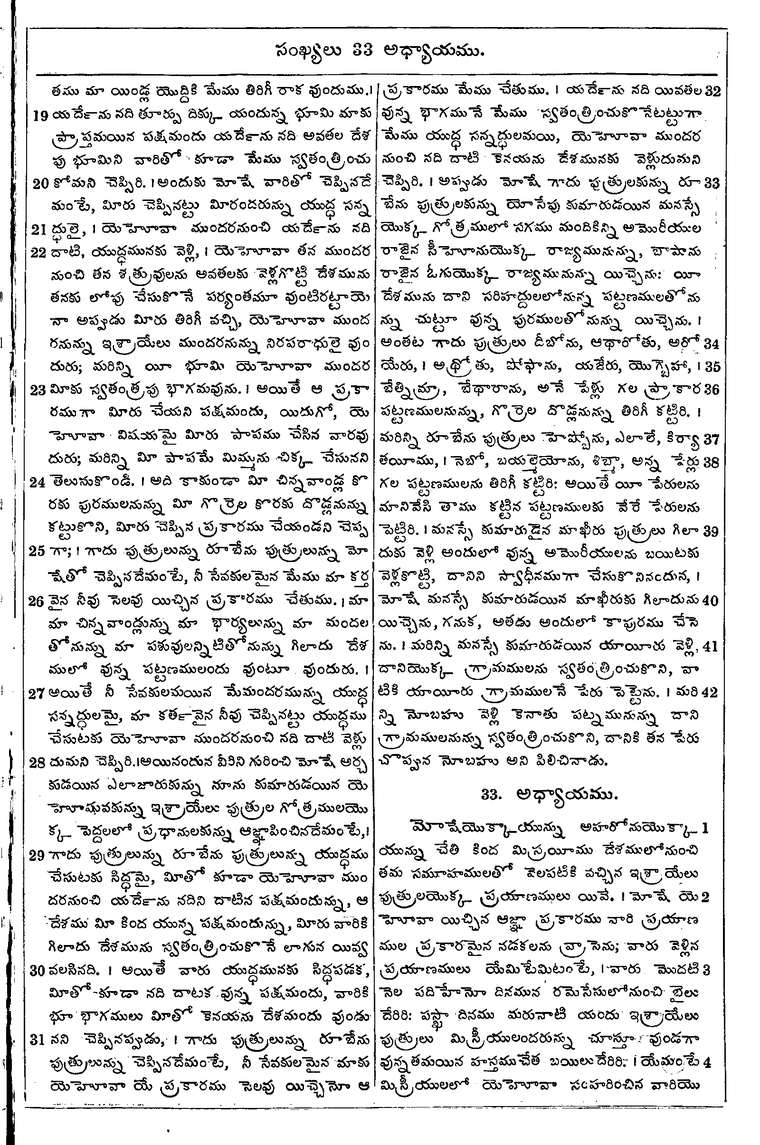 సంఖ్యలు 33 అధ్యాయము.
తము మా యిండ్ల యొద్దికి మేము తిరిగీ రాక వుందుము.।
19 యర్దేను నది తూర్పు దిక్కు యందున్న భూమి మాకు
ప్రాప్తమయిన పక్షమందు యర్దేను నది అవతల దేశ
పు భూమిని వారితో కూడా మేము స్వతంత్రించు
20 కోమని చెప్పిరి. । అందుకు మోషే వారితో చెప్పినదే
మంటే, మీరు చెప్పినట్టు మీరందరున్ను యుద్ధ సన్న
21 ద్ధులై, । యెహోవా ముందరనుంచి యర్దేను నది
22 దాటి, యుద్ధమునకు వెళ్లి, । యెహోవా తన ముందర
నుంచి తన శత్రువులను అవతలకు వెళ్లగొట్టి దేశమును
తనకు లోపు చేసుకొనే పర్యంతమూ వుంటిరట్టాయె
నా అప్పుడు మీరు తిరిగీ వచ్చి, యెహోవా ముంద
రనున్ను ఇశ్రాయేలు ముందరనున్ను నిరపరాధులై వుం
దురు; మరిన్ని యీ భూమి యెహోవా ముందర
23 మీకు స్వతంత్రపు భాగమవును. । అయితే ఆ ప్రకా
రముగా మీరు చేయని పక్షమందు, యిదుగో, యె
హోవా విషయమై మీరు పాపము చేసిన వారవు
దురు; మరిన్ని మీ పాపమే మిమ్మును చిక్క చేసునని
24 తెలుసుకొండి. । అది కాకుండా మీ చిన్నవాండ్ల కొ
రకు పురములనున్ను మీ గొర్రెల కొరకు దొడ్లనున్ను
కట్టుకొని, మీరు చెప్పిన ప్రకారము చేయండని చెప్ప
25 గా; । గాదు పుత్రులున్ను రూబేను పుత్రులున్ను మో
షేతో చెప్పినదేమంటే, నీ సేవకులమైన మేము మా కర్త
26 వైన నీవు సెలవు యిచ్చిన ప్రకారము చేతుము. । మా
మా చిన్నవాండ్లున్ను మా భార్యలున్ను మా మందల
తోనున్ను మా పశువులన్నిటితోనున్ను గిలాదు దేశ
ములో వున్న పట్టణములందు వుంటూ వుందురు. ।
27 అయితే నీ సేవకులమయిన మేమందరమున్ను యుద్ధ
సన్నద్ధులమై, మా కర్తవైన నీవు చెప్పినట్టు యుద్ధము
చేసుటకు యెహోవా ముందరనుంచి నది దాటి వెళ్లు
28 దుమని చెప్పిరి.। అయినందున వీరిని గురించి మోషే అర్చ
కుడయిన ఎలాజారుకున్ను నూను కుమారుడయిన యె
హోషువకున్ను ఇశ్రాయేలు పుత్రుల గోత్రములయొ
క్క పెద్దలలో ప్రధానులకున్ను ఆజ్ఞాపించినదేమంటే,।
29 గాదు పుత్రులున్ను రూబేను పుత్రులున్ను యుద్ధము
చేసుటకు సిద్ధమై, మీతో కూడా యెహోవా ముం
దరనుంచి యర్దేను నదిని దాటిన పక్షమందున్ను, ఆ
దేశము మీ కింద యున్న పక్షమందున్ను, మీరు వారికి
గిలాదు దేశమును స్వతంత్రించుకొనే లాగున యివ్వ
30 వలసినది. । అయితే వారు యుద్ధమునకు సిద్ధపడక,
మీతో కూడా నది దాటక వున్న పక్షమందు, వారికి
భూ భాగములు మీతో కెనయను దేశమందు వుండు
31 నని చెప్పినప్పడు, । గాదు పుత్రులున్ను రూబేను
పుత్రులున్ను చెప్పినదేమంటే, నీ సేవకులమైన మాకు
యెహోవా యే ప్రకారము సెలవు యిచ్చెనో ఆ
ప్రకారము మేము చేతుము. । యర్దేను నది యివతల 32
వున్న భాగమునే మేము స్వతంత్రించుకొనేటట్టుగా
మేము యుద్ధ సన్నద్ధులమయి, యెహోవా ముందర
నుంచి నది దాటి కెనయను దేశమునకు వెళ్లుదుమని
చెప్పిరి. । అప్పుడు మోషే గాదు పుత్రులకున్ను రూ 33
బేను పుత్రులకున్ను యోసేఫు కుమారుడయిన మనస్సే
యొక్క గోత్రములో సగము మందికిన్ని అమోరీయుల
రాజైన సీహోనుయొక్క రాజ్యమునున్ను, బాషాను
రాజైన ఓగుయొక్క రాజ్యమునున్ను యిచ్చెను: యీ
దేశమును దాని సరిహద్దులలోనున్న పట్టణములతోను
న్ను చుట్టూ వున్న పురములతోనున్ను యిచ్చెను. ।
అంతట గాదు పుత్రులు దీబోను, ఆథారోతు, అరో 34
యేరు, । అథ్రోతు, షోఫాను, యజేరు, యొగ్బెహా, । 35
బేత్నిమ్రా, బేథారాను, అనే పేళ్లు గల ప్రాకార 36
పట్టణములనున్ను, గొర్రెల దొడ్లనున్ను తిరిగీ కట్టిరి. ।
మరిన్ని రూబేను పుత్రులు హెష్బోను, ఎలాలే, కిర్యా 37
తయీము, । నెబో, బయల్మెయోను, శిబ్మా, అన్న పేర్లు 38
గల పట్టణములను తిరిగీ కట్టిరి: అయితే యీ పేరులను
మానివేసి తాము కట్టిన పట్టణములకు వేరే పేరులను
పెట్టిరి. । మనస్సే కుమారుడైన మాఖీరు పుత్రులు గిలా 39
దుకు వెళ్లి అందులో వున్న అమోరీయులను బయిటకు
వెళ్లకొట్టి, దానిని స్వాధీనముగా చేసుకొనినందున, ।
మోషే మనస్సే కుమారుడయిన మాఖీరుకు గిలాదును 40
యిచ్చెను, గనుక, అతడు అందులో కాపురము చేసె
ను. । మరిన్ని మనస్సే కుమారుడయిన యాయీరు వెళ్లి, 41
దానియొక్క గ్రామములను స్వతంత్రించుకొని, వా
టికి యాయీరు గ్రామములనే పేరు పెట్టెను. । మరి 42
న్ని నోబహు వెళ్లి కెనాతు పట్నమునున్ను దాని
గ్రామములనున్ను స్వతంత్రించుకొని, దానికి తన పేరు
చొప్పున నోబహు అని పిలిచినాడు.
33. అధ్యాయము.
మోషేయొక్కాయున్ను అహరోనుయొక్కా 1
యున్ను చేతి కింద మిస్రయీము దేశములోనుంచి
తమ సమూహములతో వెలపటికి వచ్చిన ఇశ్రాయేలు
పుత్రులయొక్క ప్రయాణములు యివే. । మోషే యె 2
హోవా యిచ్చిన ఆజ్ఞా ప్రకారము వారి ప్రయాణ
ముల ప్రకారమైన నడకలను వ్రాసెను; వారు వెళ్లిన
ప్రయాణములు యేమిటేమిటంటే, । వారు మొదటి 3
నెల పదిహేనో దినమున రమెసేసులోనుంచి బైలు
దేరిరి: పస్ఖా దినము మరునాటి యందు ఇశ్రాయేలు
పుత్రులు మిస్రీయులందరున్ను చూస్తూ వుండగా
వున్నతమయిన హస్తముచేత బయిలుదేరిరి. । యేమంటే 4
మిస్రీయులలో యెహోవా సంహరించిన వారియొ